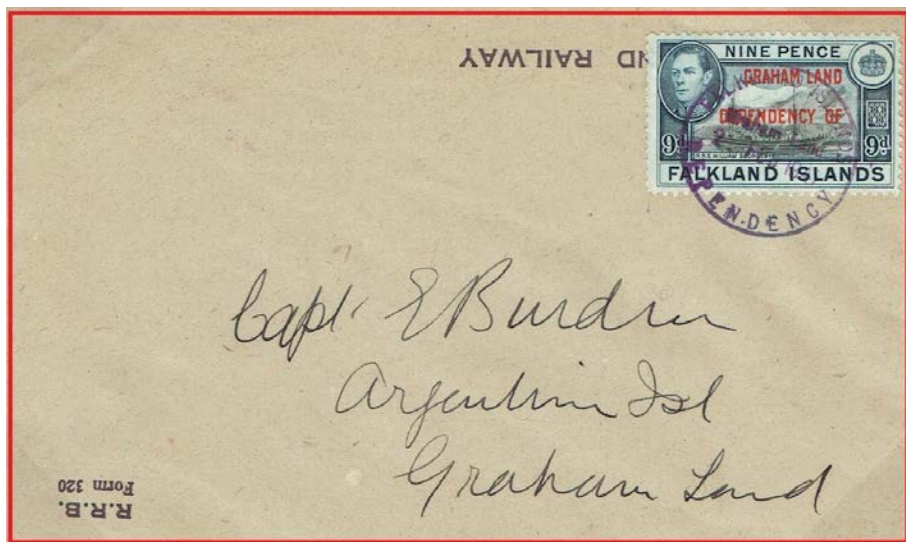 ND RAILWAY
NINE PENCE
GRAHAM LAND
DEPENDENCY OF
9d 9d
FALKLAND ISLANDS
DEPENDENCY
Capt. E Burdon
Argentine Isl
Graham Land
R.R.B.
Form 320